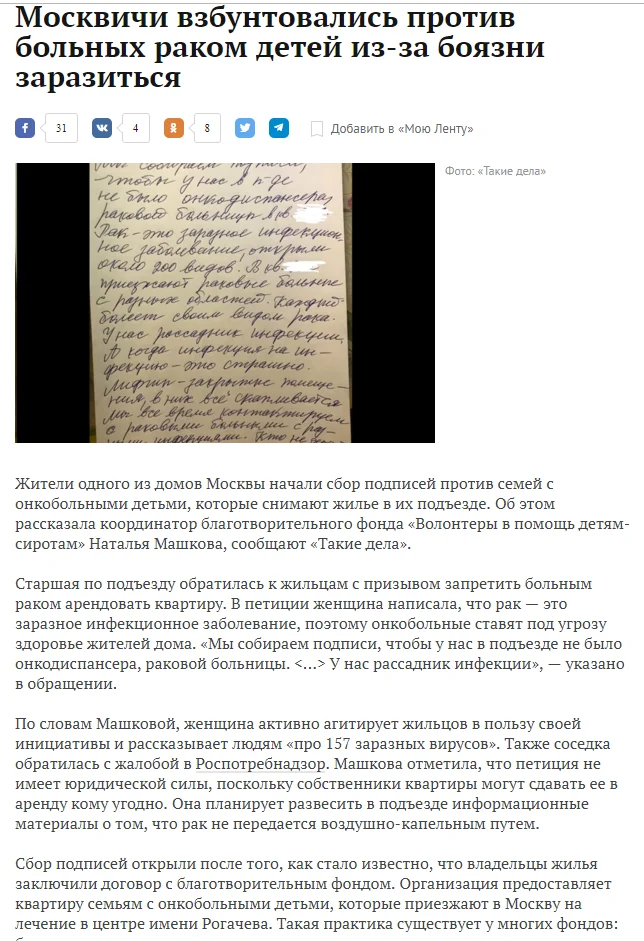 Москвичи взбунтовались против
больных раком детей из-за боязни
заразиться
31
4
8
Добавить в «Мою Ленту»
Фото: «Такие дела»
мы собираем подписи,
чтобы у нас в п-де
не было онкодиспансера,
раковой больницы в кв
Рак – это заразное инфекцион-
ное заболевание, открыли
около 200 видов. В кв.
приезжают раковые больные
с разных областей. Каждый
болеет своим видом рака.
У нас рассадник инфекции.
А когда инфекция на ин-
фекцию – это страшно.
Лифты – закрытые помеще-
ния, в них всё скапливается
Мы все время контактируем
с раковыми больными с раз-
ными инфекциями. Кто не
Жители одного из домов Москвы начали сбор подписей против семей с
онкобольными детьми, которые снимают жилье в их подъезде. Об этом
рассказала координатор благотворительного фонда «Волонтеры в помощь детям-
сиротам» Наталья Машкова, сообщают «Такие дела».
Старшая по подъезду обратилась к жильцам с призывом запретить больным
раком арендовать квартиру. В петиции женщина написала, что рак — это
заразное инфекционное заболевание, поэтому онкобольные ставят под угрозу
здоровье жителей дома. «Мы собираем подписи, чтобы у нас в подъезде не было
онкодиспансера, раковой больницы. <...> У нас рассадник инфекции», — указано
в обращении.
По словам Машковой, женщина активно агитирует жильцов в пользу своей
инициативы и рассказывает людям «про 157 заразных вирусов». Также соседка
обратилась с жалобой в Роспотребнадзор. Машкова отметила, что петиция не
имеет юридической силы, поскольку собственники квартиры могут сдавать ее в
аренду кому угодно. Она планирует развесить в подъезде информационные
материалы о том, что рак не передается воздушно-капельным путем.
Сбор подписей открыли после того, как стало известно, что владельцы жилья
заключили договор с благотворительным фондом. Организация предоставляет
квартиру семьям с онкобольными детьми, которые приезжают в Москву на
лечение в центре имени Рогачева. Такая практика существует у многих фондов: